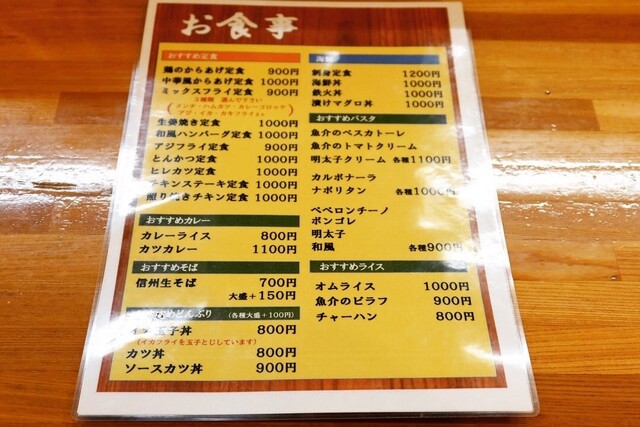 お食事
おすすめ定食
鶏のからあげ定食 900円
中華風からあげ定食 1000円
ミックスフライ定食 900円
3種類 選んで下さい
メンチ・ハムカツ・カレーコロッケ
アジ・イカ・カキフライ
生姜焼き定食 1000円
和風ハンバーグ定食 1000円
アジフライ定食 900円
とんかつ定食 1000円
ヒレカツ定食 1000円
チキンステーキ定食 1000円
照り焼きチキン定食 1000円
おすすめカレー
カレーライス 800円
カツカレー 1100円
おすすめそば
信州生そば 700円
大盛+150円
どんぶり (各種大盛+100円)
玉子丼 800円
(イカフライを玉子とじしています)
カツ丼 800円
ソースカツ丼 900円
海鮮
刺身定食 1200円
海鮮丼 1000円
鉄火丼 1000円
漬けマグロ丼 1000円
おすすめパスタ
魚介のペスカトーレ
魚介のトマトクリーム
明太子クリーム 各種1100円
カルボナーラ
ナポリタン 各種1000円
ペペロンチーノ
ボンゴレ
明太子
和風 各種900円
おすすめライス
オムライス 1000円
魚介のピラフ 900円
チャーハン 800円